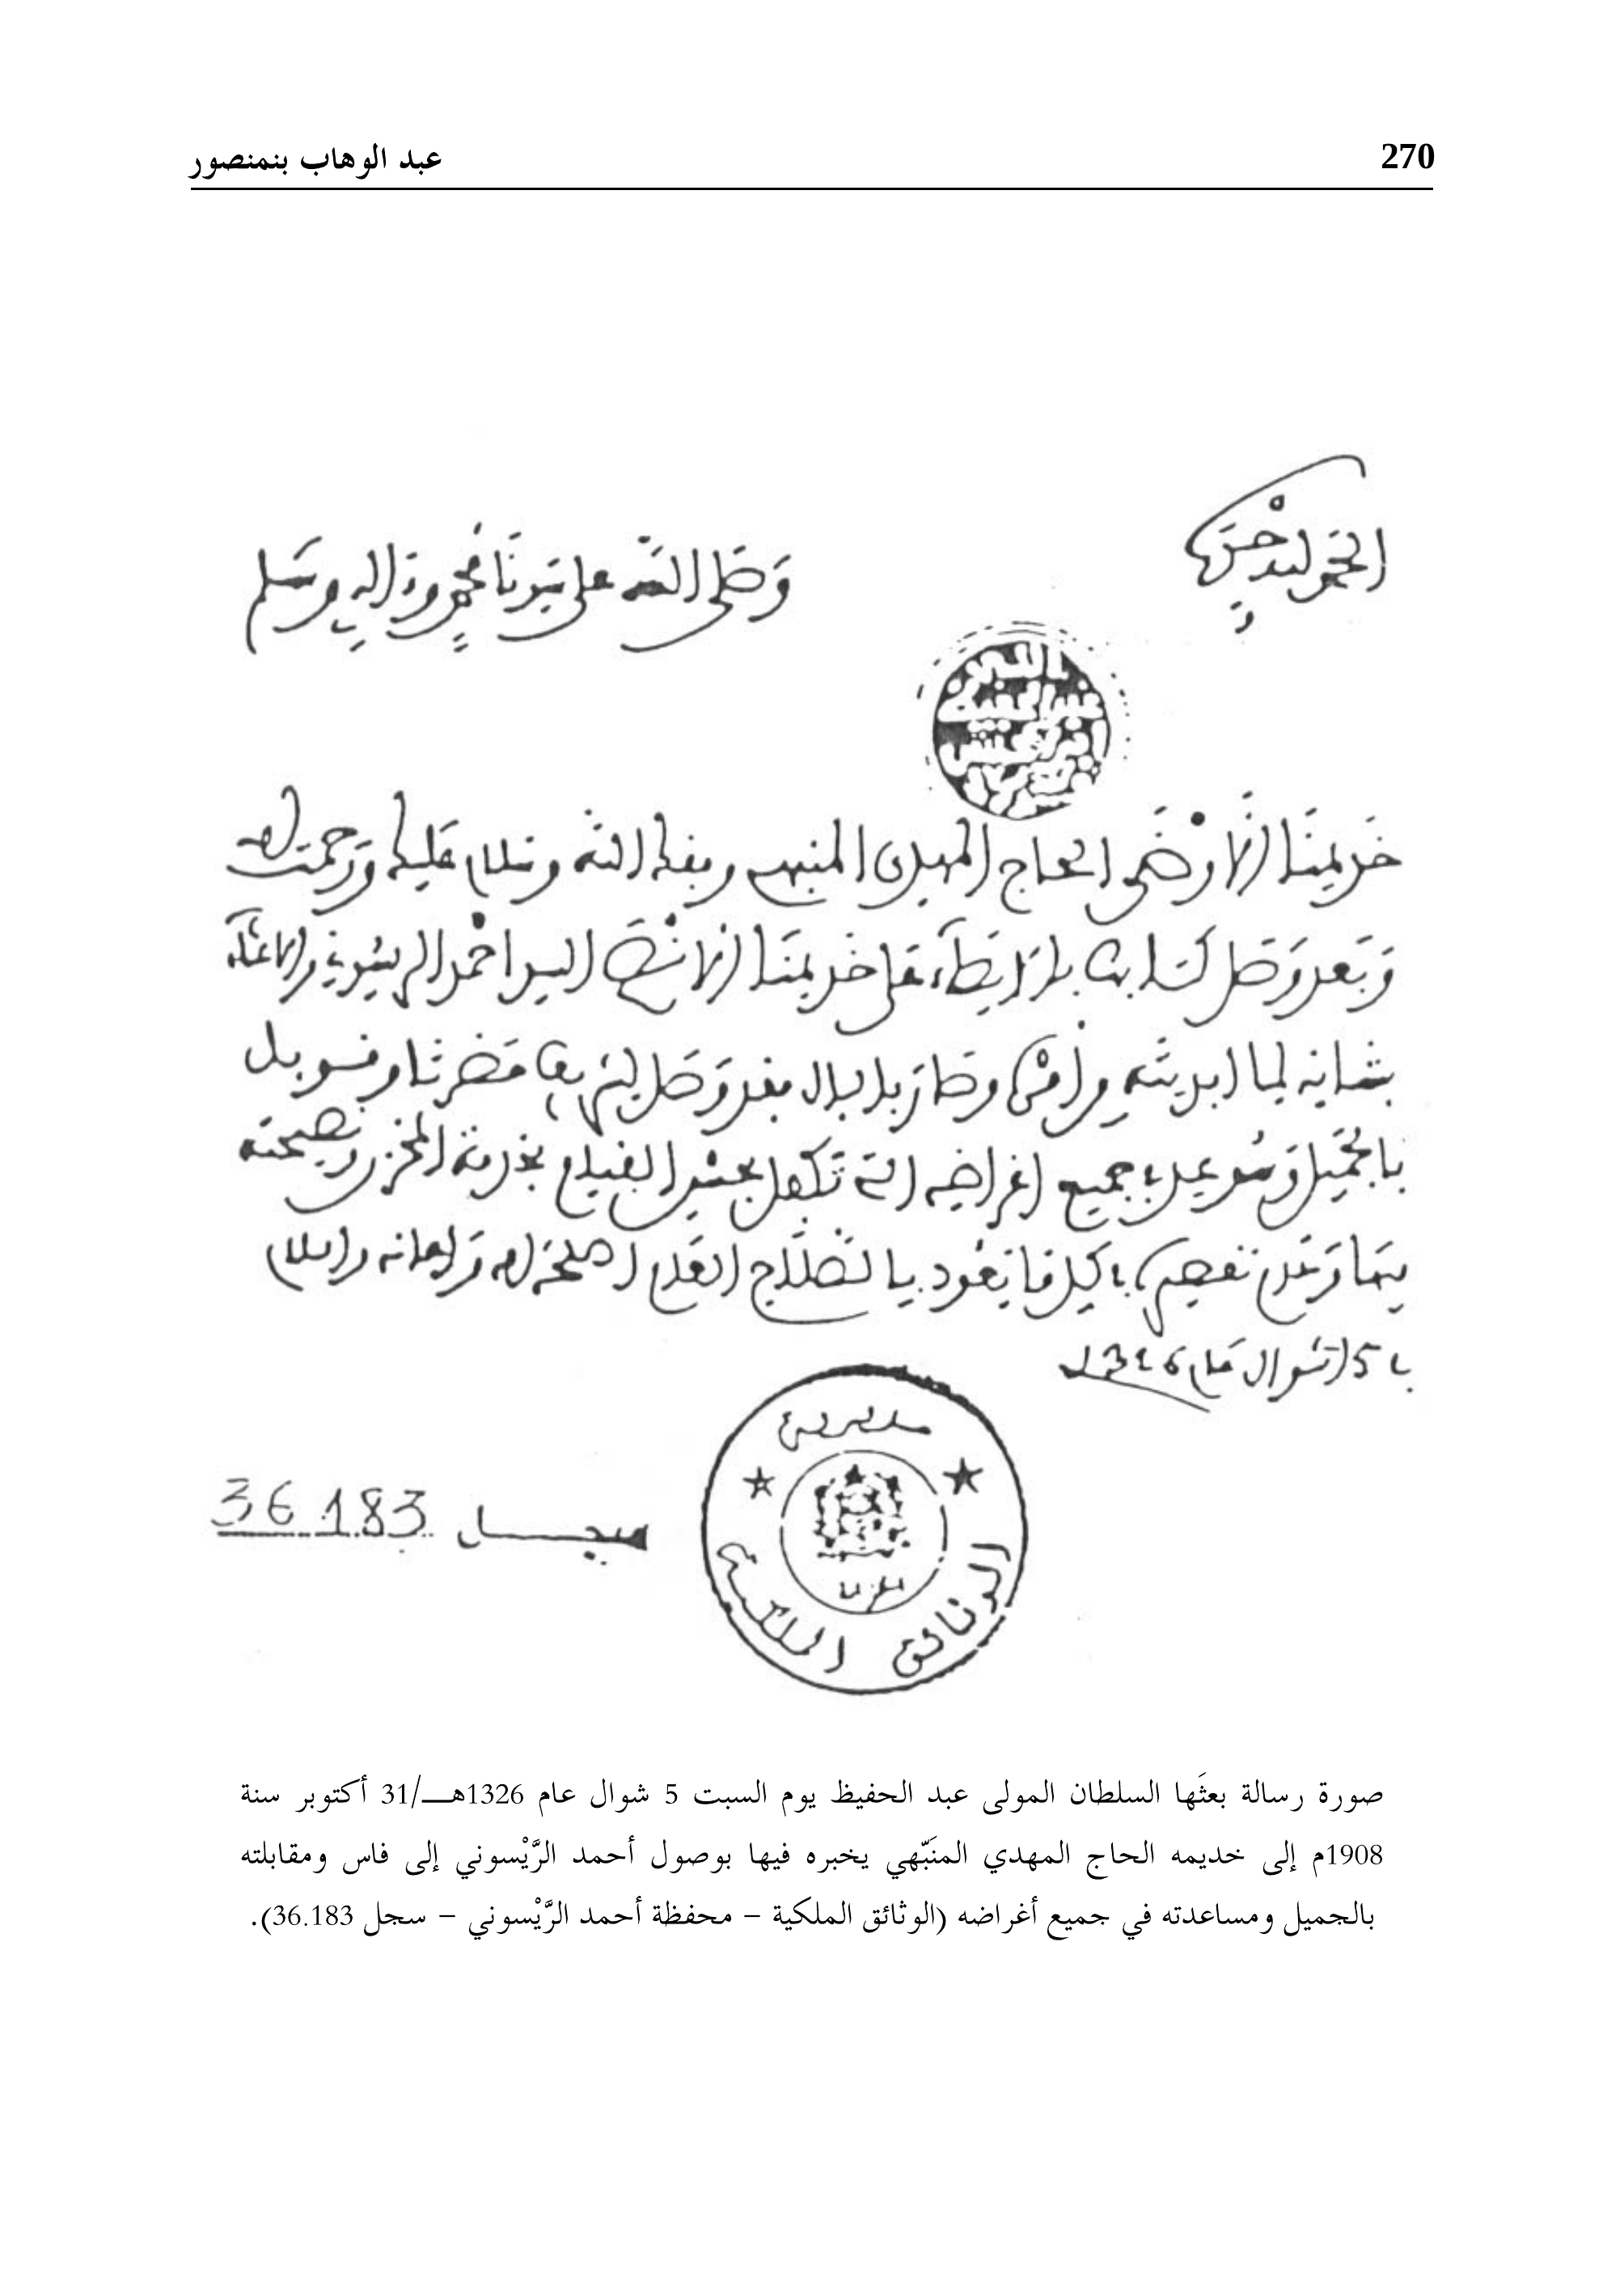 270
عبد الوهاب بنمنصور
الحمد لله وحده
وصلى الله على سيدنا محمد وءاله وسلم
خديمنا الأرضى الحاج المهدي المنبهي وفقك الله وسلام عليك ورحمت الله
وبعد وصل كتابك بالوصاة على خديمنا الأنصح السيد احمد الريسوني والاعتناء
بشانه لما ابديته وصار بالبال فقد وصل لحضرتنا وقوبل
بالجميل وسوعد بجميع اغراضه التي تكفل بحسن القيام بخدمة المخزن ونصيحته
بكل ما يعود بالصلاح العام اصلحك الله واعانك والسلام
في 5 شوال عام 1326
مديرية
الوثائق الملكية
سجل 36.183
صورة رسالة بعثَها السلطان المولى عبد الحفيظ يوم السبت 5 شوال عام 1326هـ/31 أكتوبر سنة
1908م إلى خديمه الحاج المهدي المنَبّهي يخبره فيها بوصول أحمد الرَّيْسوني إلى فاس ومقابلته
بالجميل ومساعدته في جميع أغراضه (الوثائق الملكية – محفظة أحمد الرَّيْسوني – سجل 36.183).